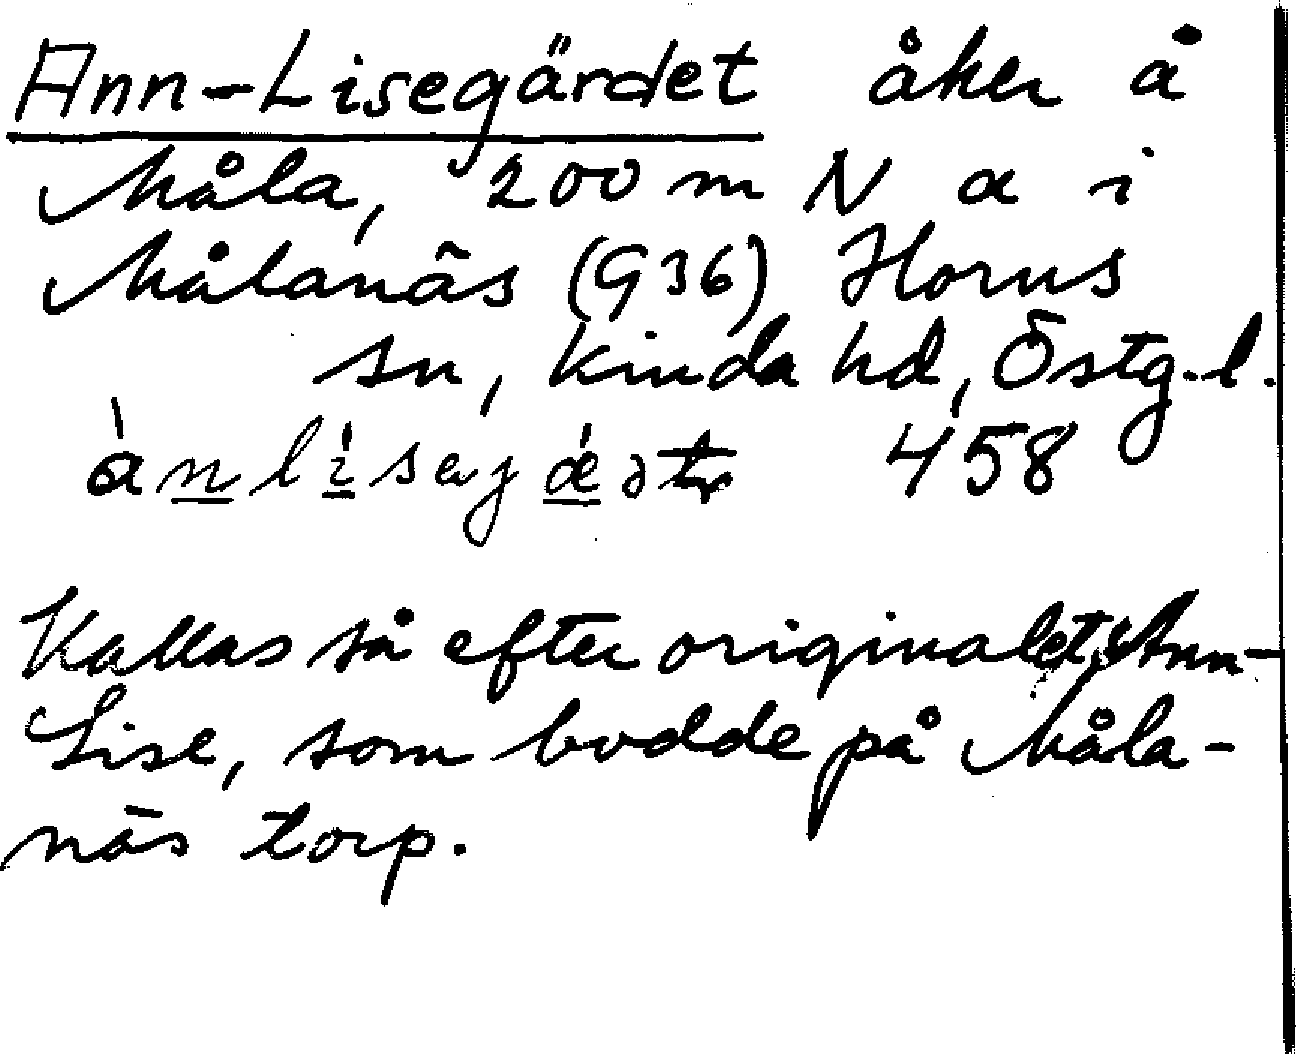 Ann-Lisegärdet åker å
Måla, 200 m N a i
Målanäs (G36) Horns
sn, Kinda hd, Östg.l.
458
Kallas så efter originalet Ann-
Lise, som bodde på Måla-
näs torp.